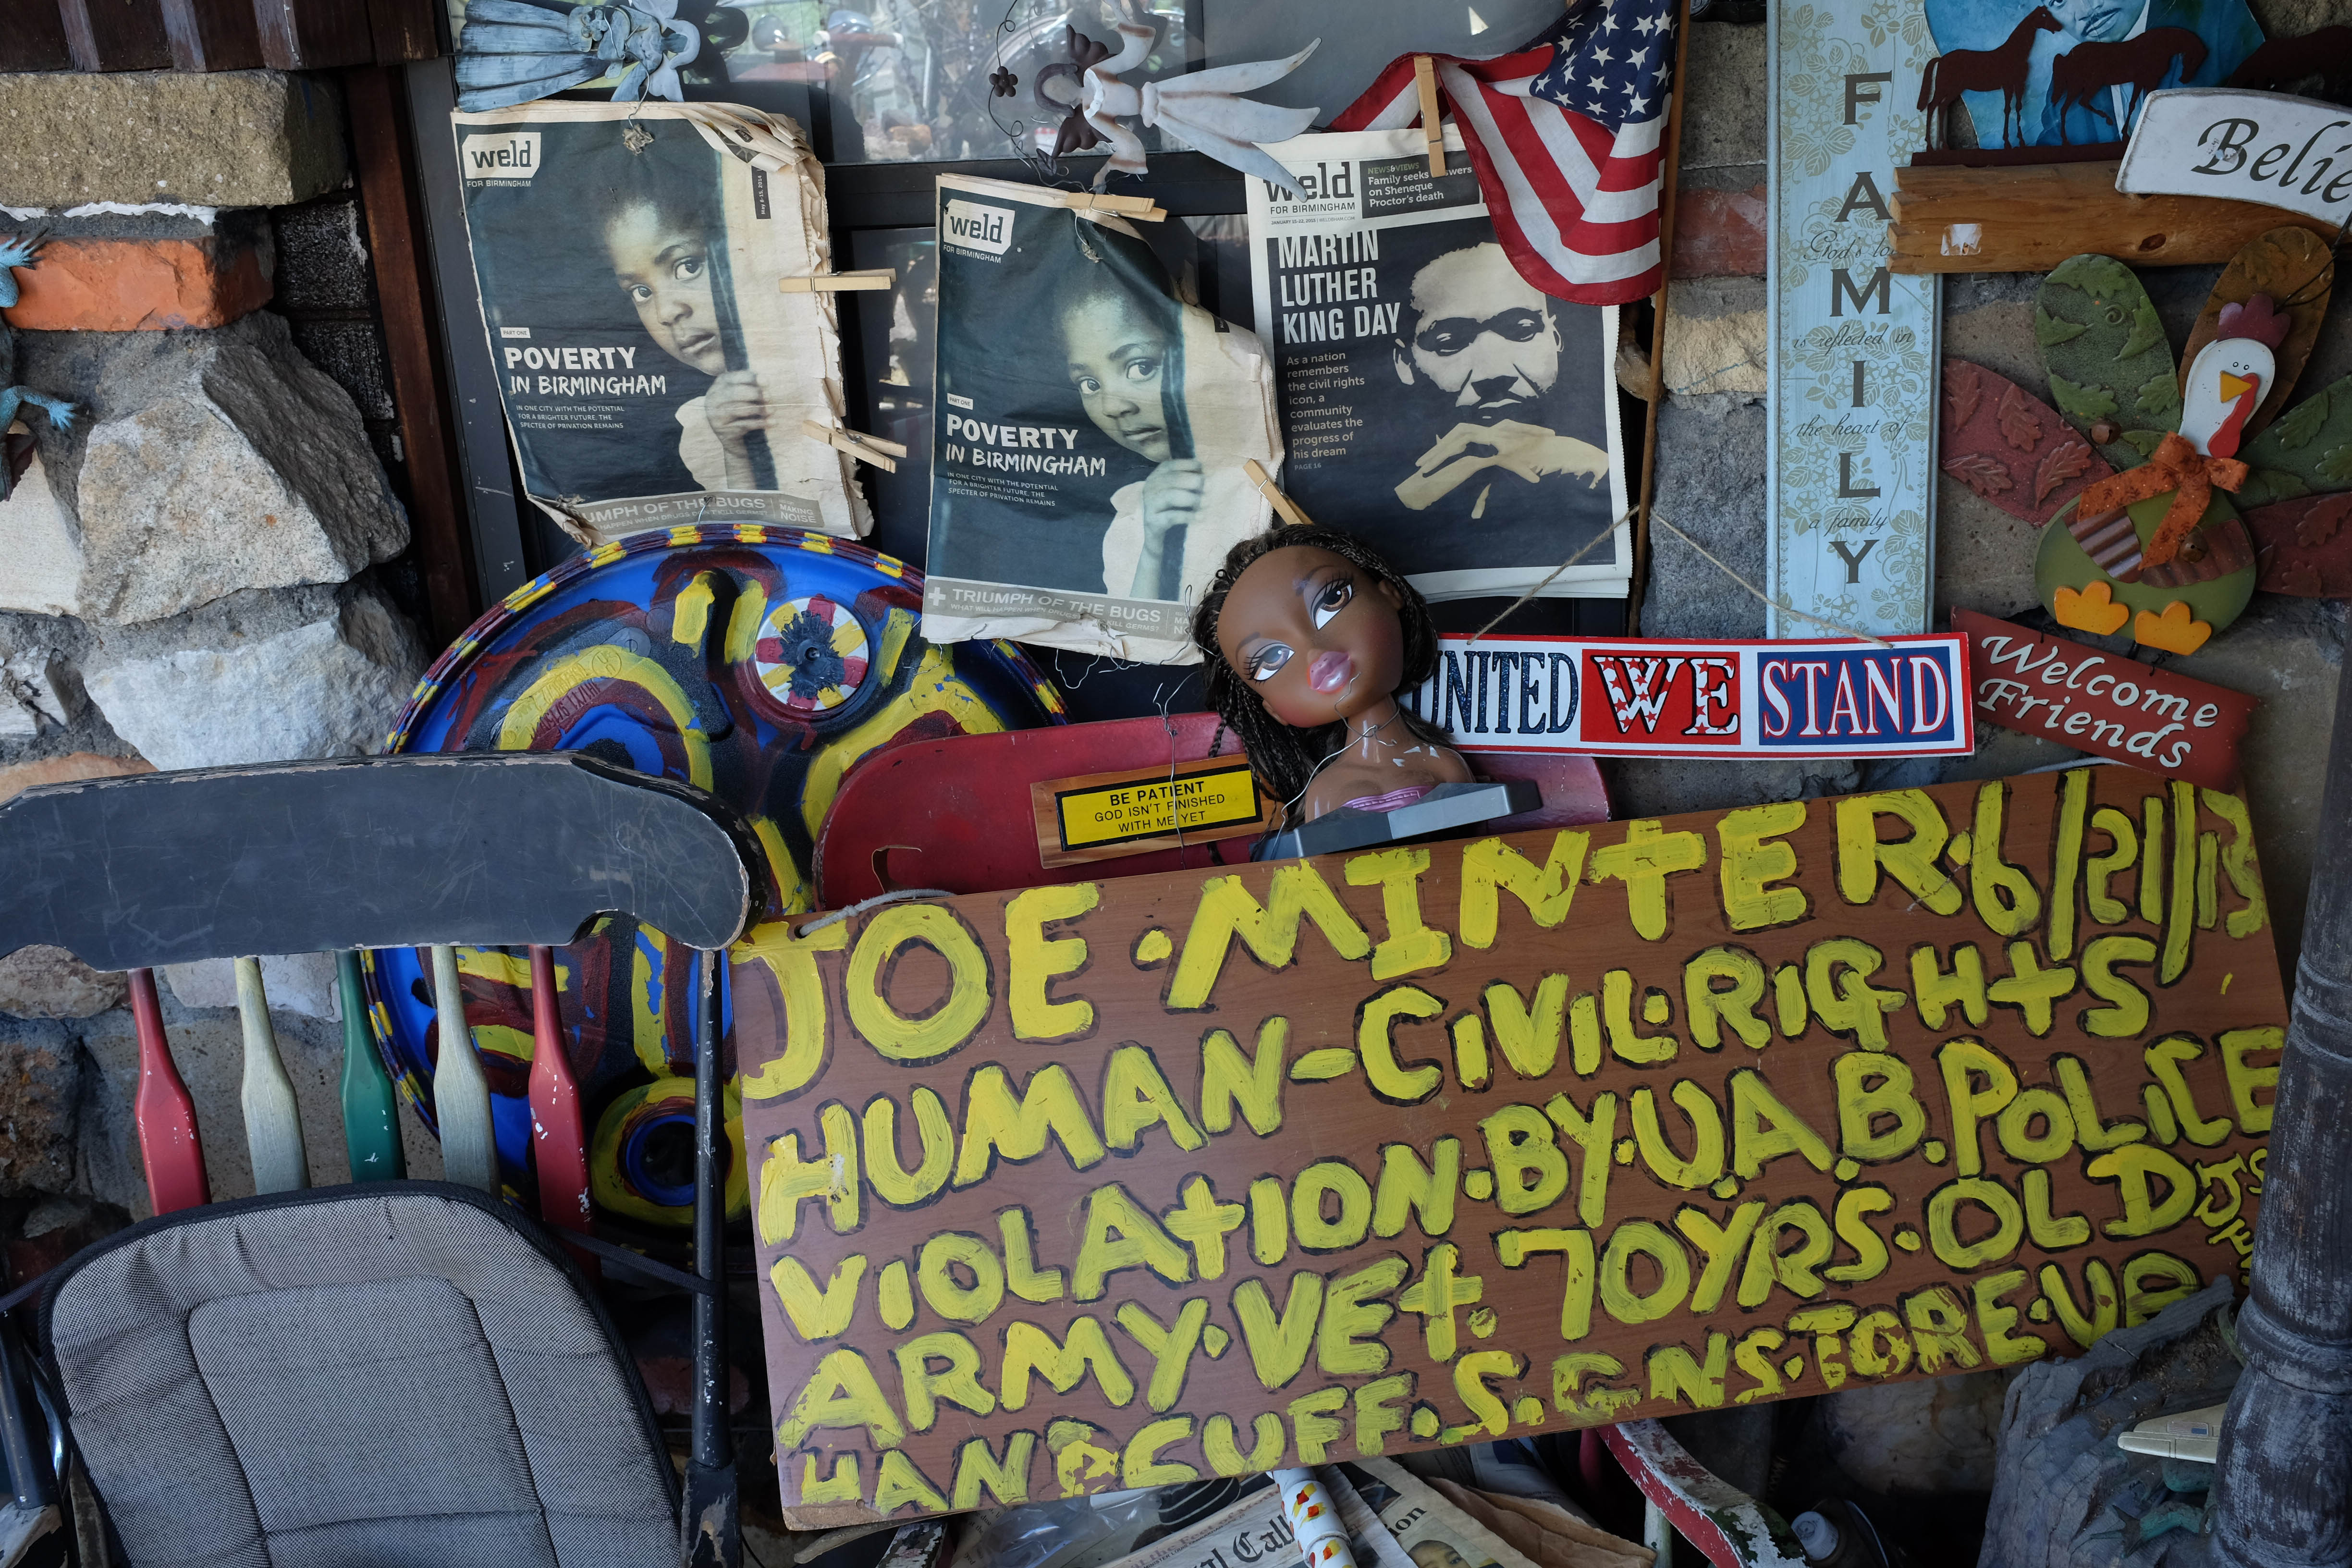 weld
FOR BIRMINGHAM
May 8-15, 2014
PART ONE
POVERTY
IN BIRMINGHAM
IN ONE CITY WITH THE POTENTIAL
FOR A BRIGHTER FUTURE, THE
SPECTER OF PRIVATION REMAINS
UMPH OF THE BUGS
HAPPEN WHEN DRUGS
MAKING
NOISE
weld
FOR BIRMINGHAM
PART ONE
POVERTY
IN BIRMINGHAM
IN ONE CITY WITH THE POTENTIAL
FOR A BRIGHTER FUTURE, THE
SPECTER OF PRIVATION REMAINS
TRIUMPH OF THE BUGS
WHAT WILL HAPPEN WHEN DRUGS
KILL GERMS?
weld
FOR BIRMINGHAM
NEWS&VIEWS
Family seeks
on Sheneque
Proctor's death
MARTIN
LUTHER
KING DAY
As a nation
remembers
the civil rights
icon, a
community
evaluates the
progress of
his dream
PAGE 16
FAMILY
God's lo
is reflected in
the heart of
a family
Belie
Welcome
Friends
UNITED WE STAND
BE PATIENT
GOD ISN'T FINISHED
WITH ME YET
JOE.MINTER.6/21/13
HUMAN-CIVIL.RIGHTS
VIOLATION.BY.U.A.B.POLICE
ARMY.VET.70YRS.OLD
HANDCUFF.S.GNS.TORE.UP